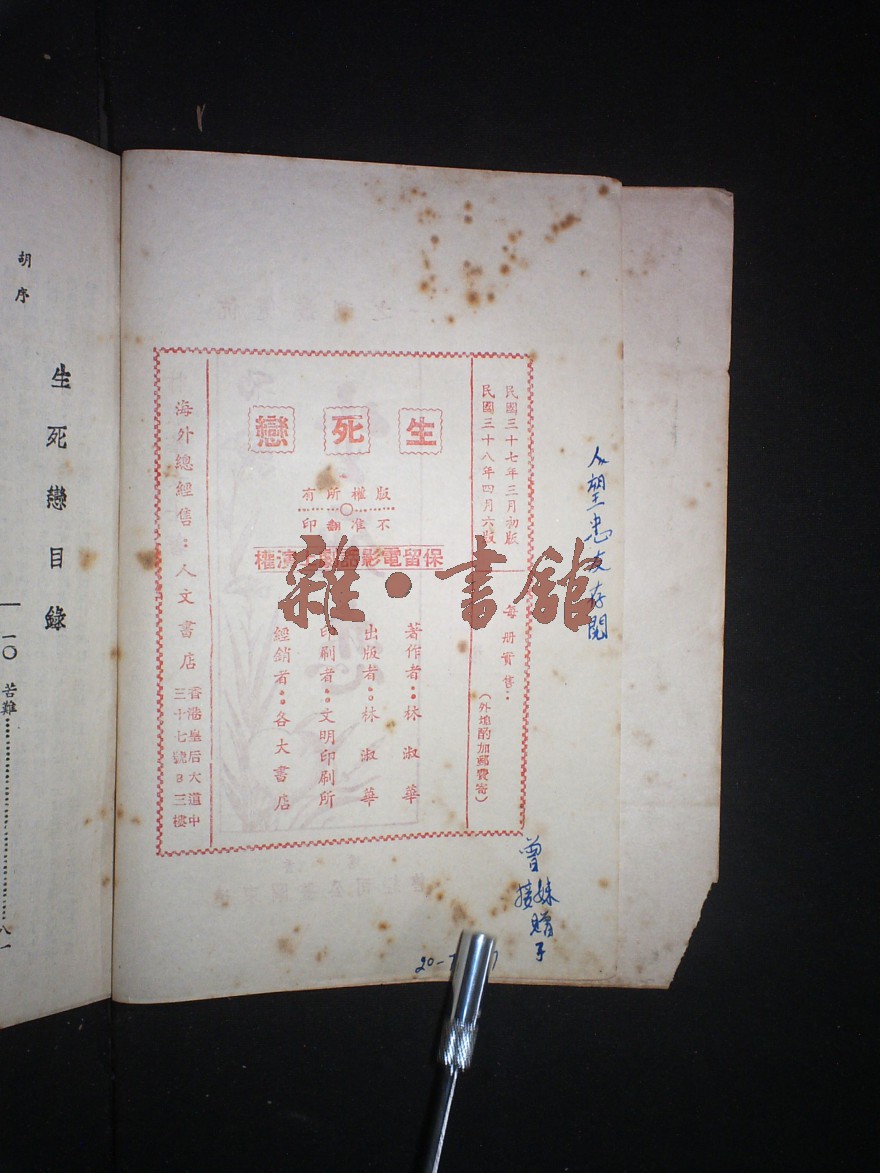 民國三十七年三月初版
民國三十八年四月六版
每冊實售：
(外埠酌加郵費寄)
生死戀
版權所有
不准翻印
保留電影
演權
著作者：林淑華
出版者：林淑華
印刷者：文明印刷所
經銷者：各大書店
海外總經售：人文書店
香港皇后大道中
三十七號B三樓
存閱
曾
妹
贈
20-
胡序
生死戀目錄
一〇 苦難
八一
雜·書館